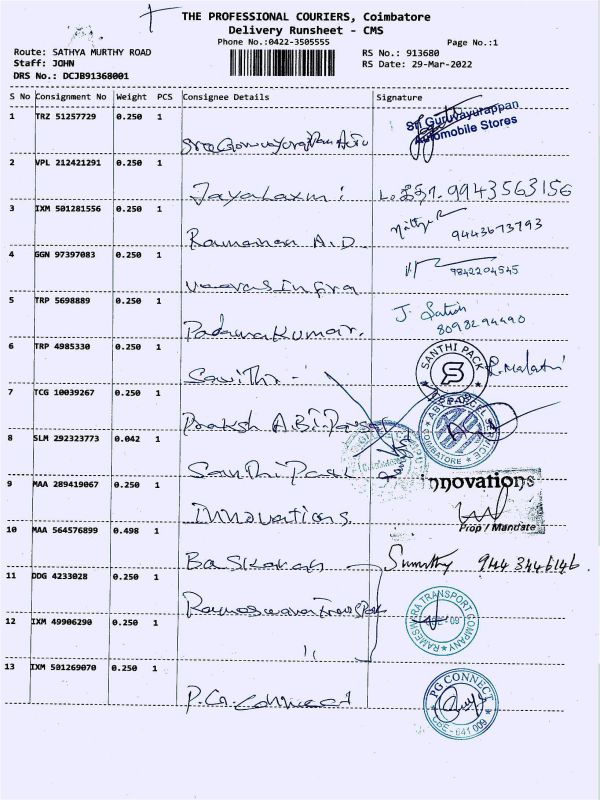 THE PROFESSIONAL COURIERS, Coimbatore
Delivery Runsheet - CMS
Phone No.:0422-3505555
Page No.:1
Route: SATHYA MURTHY ROAD
RS No.: 913680
Staff: JOHN
RS Date: 29-Mar-2022
DRS No.: DCJB91368001
S No Consignment No Weight PCS Consignee Details Signature
1 TRZ 51257729 0.250 1
Sri Guruvayurappan
Automobile Stores
2 VPL 212421291 0.250 1
Jayalaxmi 9943563156
3 IXM 501281556 0.250 1
A.D. 9443673793
4 GGN 97397083 0.250 1
infra 9842204545
5 TRP 5698889 0.250 1
Padamakumar. J. Satish
8098294490
6 TRP 4985330 0.250 1
Savithri SANTHI PACK S R. Malathi
7 TCG 10039267 0.250 1
Prakash ABI Parcel ABI PARCEL SERVICE COIMBATORE
8 SLM 292323773 0.042 1
Santhi Pack
9 MAA 289419067 0.250 1
Innovations innovations
Prop / Mandate
10 MAA 564576899 0.498 1
Baskaran Sumathy 944 3446146.
11 DDG 4233028 0.250 1
Rameswara Transport RAMESWARA TRANSPORT COMPANY
12 IXM 49906290 0.250 1
"
13 IXM 501269070 0.250 1
P.G. Connect PG CONNECT
CBE - 641 009